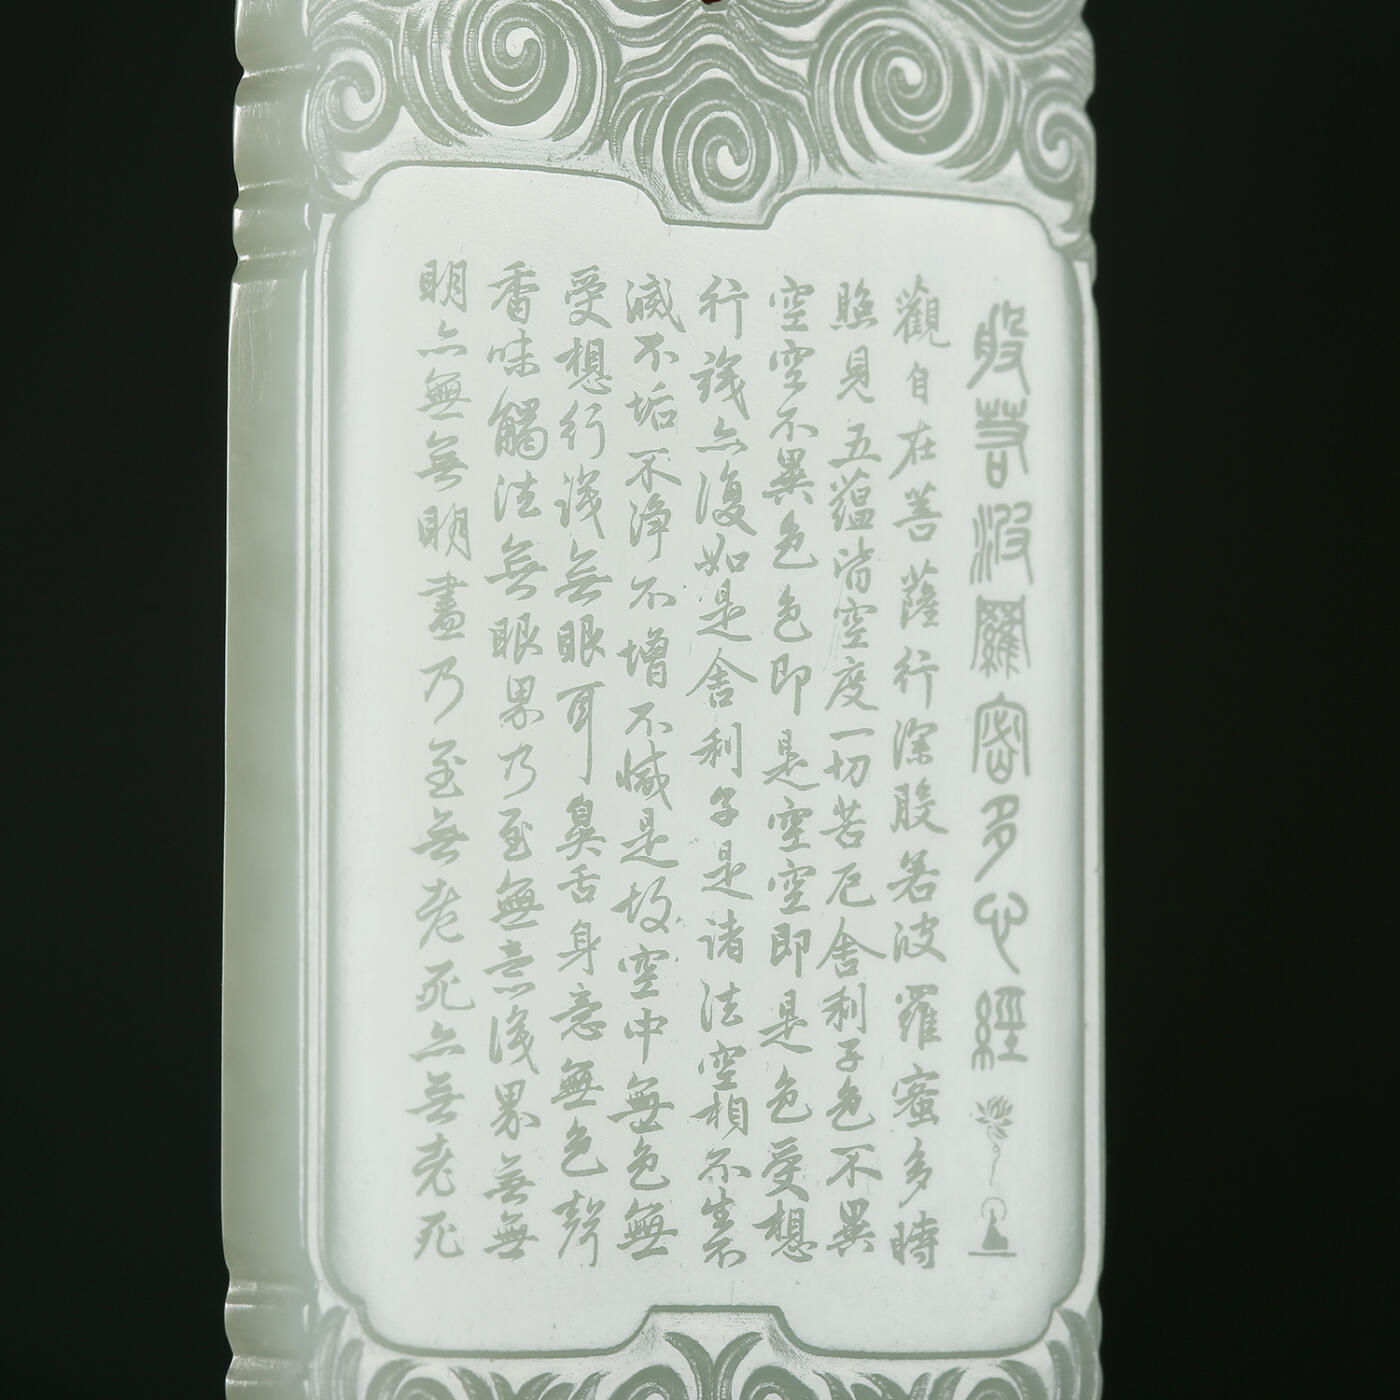 般若波羅密多心經
觀自在菩薩行深般若波羅蜜多時
照見五蘊皆空度一切苦厄舍利子色不異
空空不異色色即是空空即是色受想
行識亦復如是舍利子是諸法空相不生不
滅不垢不淨不增不減是故空中無色無
受想行識無眼耳鼻舌身意無色聲
香味觸法無眼界乃至無意識界無無
明亦無無明盡乃至無老死亦無老死